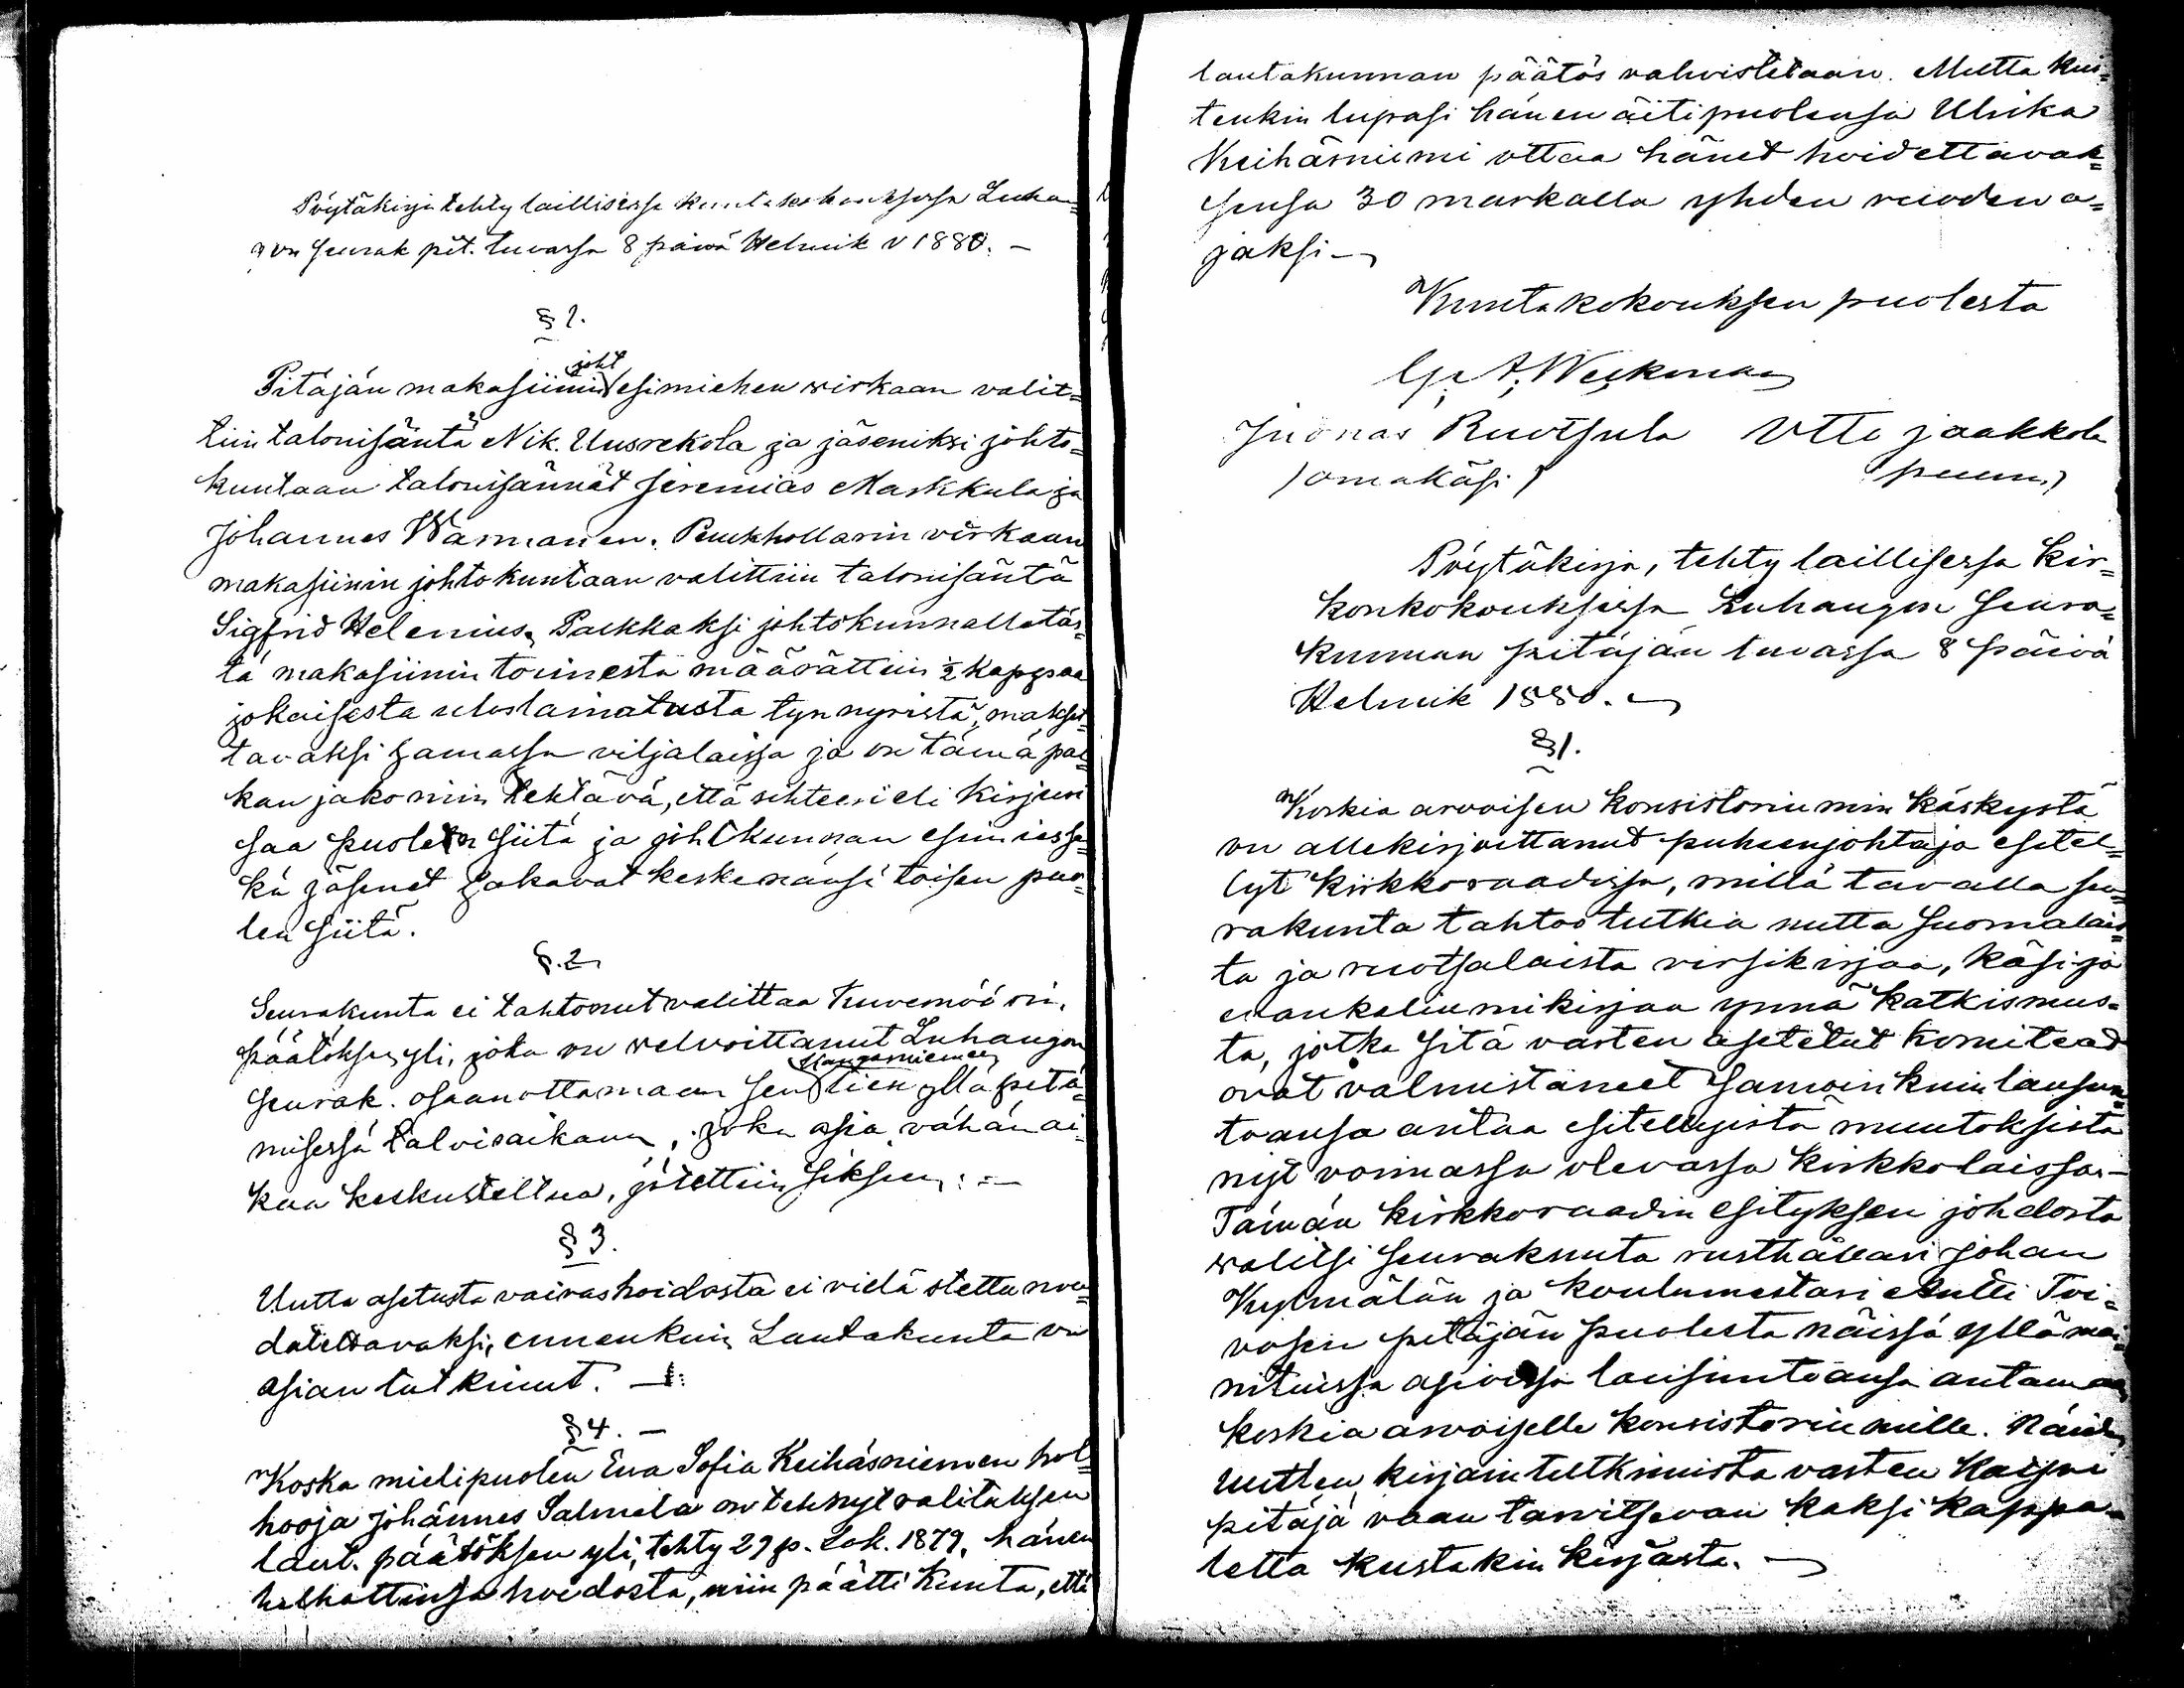 Pöytäkirja tehty laillisessa kuntakokouksessa Luhan=
gon seurak pit. tuvassa 8 päivä Helmik v 1880. —
§ 1.
joht
Pitäjän makasiinin esimiehen wirkaan valit=
tiin talonisäntä Nik. Uusrekola ja jäseniksi johto=
kuntaan talonisännät Jeremias Markkula ja
Johannes Warmanen. Penkhollarin virkaan
makasiinin johtokuntaan valittiin talonisäntä
Sigfrid Helenius. Palkkaksi johtokunnalle täs=
tä makasiinin toimesta määrättiin ½ kappaa
jokaisesta uloslainatusta tynnyristä, makset=
tavaksi samassa viljalaissa ja on tämä pal=
kan jako niin tehtävä, että sihteeri eli kirjuri
saa puolen siitä ja johtkunnan esimies se=
kä jäsenet jakavat keskenänsä toisen puo=
len siitä.
§. 2
Seurakunta ei tahtonut valittaa Kuvernöörin
päätöksen yli, joka on welvoittanut Luhangon
Kangasniemen
seurak. osaanottamaan sen tien ylläpitä=
misessä talvisaikana, joka asia, vähän ai=
kaa keskusteltua, jätettiin sikseen. : —
§ 3.
Uutta asetusta vaivashoidosta ei vielä otettu nou=
datettavaksi, ennenkuin Lautakunta on
asian tutkinut. —
§ 4. —
Koska mielipuolen Eva Sofia Keihäsniemen hol=
hooja Johannes Salmela on tehnyt valituksen
laut. päätöksen yli, tehty 29 p. Lok. 1879, hänen
holhottinsa hoidosta, niin päätti kunta, että
lautakunnan päätös vahvistetaan. Mutta kui=
tenkin lupasi hänen äitipuolensa Ulrika
Keihäsniemi ottaa hänet hoidettavak=
sensa 30 markalla yhden vuoden a=
jaksi —
Kuntakokouksen puolesta
G. A. Weckman
Juonas Ruotsula Otto Jaakkola
(omakäsi) puum.)
Pöytäkirja, tehty laillisessa kir=
konkokouksessa Luhangon seura=
kunnan pitäjän tuvassa 8 päivä
Helmik 1880. —
§ 1.
Korkia arvoisen Konsistoriumin käskystä
on allekirjoittanut puheenjohtaja esitel=
lyt kirkkoraadissa, millä tavalla seu=
rakunta tahtoo tutkia uutta suomalais=
ta ja ruotsalaista virsikirjaa, käsi ja
evankeliumikirjaa ynnä katkismus=
ta, jotka sitä varten asetetut komitead
ovat valmistaneet samoin kuin lausun=
toansa antaa esitellyistä muutoksista
nyt voimassa olevassa kirkkolaissa. —
Tämän kirkkoraadin esityksen johdosta
walitsi seurakunta rusthallari Johan
Kylmälän ja koulumestari Antti Toi=
vosen pitäjän puolesta näissä yllämai=
nituissa asioissa lausuntoansa antamaan
korkia arvoiselle konsistoriumille. Näiden
uutten kirjain tutkimista varten kaipaa
pitäjä vaan tarvitsevan kaksi kappa=
letta kustakin kirjasta. —